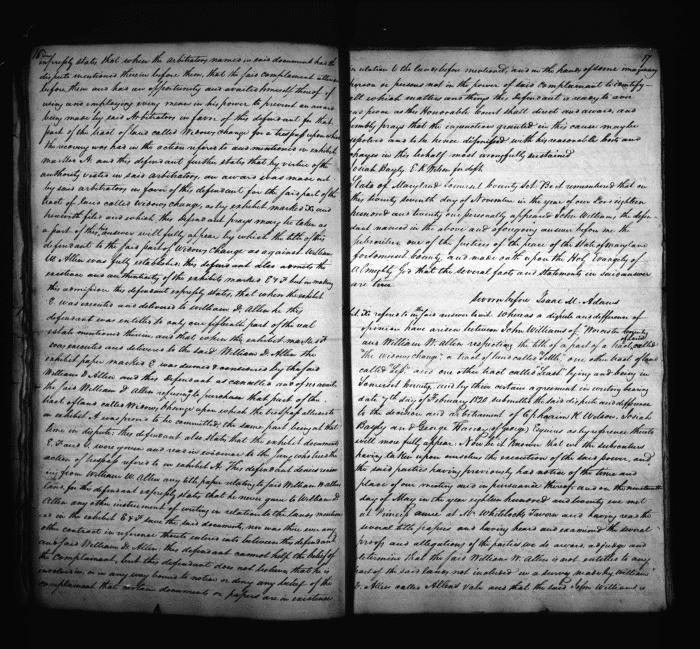 16
expressly states, that when the arbitrators named in said document had the
dispute mentioned therein before them, that the said complainant attended
before them and had an opportunity and availed himself thereof of
using and employing every means in his power to prevent an award
being made by said Arbitrators in favor of this defendant for that
part of the tract of land called Widows Change for a trespass upon which
the recovery was had in the action referred to and mentioned in exhibit
marked A. and this defendant further states that by virtue of the
authority vested in said arbitrators, an award was made out
by said arbitrators in favor of this defendant for the said part of the
tract of land called Widows Change, as by exhibit marked and
herewith filed and which this defendant prays may be taken as
a part of this answer will fully appear by which the title of this
defendant to the said part of Widows Change as against William
W. Allen was fully established. this defendant also admits the
existence and authenticity of the exhibits marked E & F but in making
this admission this defendant expressly states, that when the exhibit
E was executed and delivered to William D. Allen he this
defendant was entitled to only one fifteenth part of the real
estate mentioned therein, and that when the exhibit marked F
was executed and delivered to the said William D. Allen the
exhibit paper marked E was deemed & considered by the said
William D. Allen and this defendant as cancelled and of no avail
the said William D Allen refusing to purchase that part of the
tract of land called Widows Change upon which the trespass alledged
in exhibit A was proved to be committed, the same part being at that
time in dispute; this defendant also states that the exhibit documents
E, F and G were given and read in evidence to the Jury who tried the
action of trespass referred to in exhibit A. This defendant denies receiv
ing from William W. Allen any title paper relating to said William W. Allens
land, for the defendant expressly states that he never gave to William D
Allen any other instrument of writing in relation to the lands, mentioned
as in the exhibit E & F save the said documents, nor was there ever any
other contract in reference thereto entered into between this defendant
and said William D. Allen. this defendant cannot help the belief of
the Complainant, but this defendant does not believe that he is
in any way bound to notice or deny any belief of the
complainant that certain documents or papers are in existence
17
in relation to the lands before mentioned, and in the hands of some imaginary
person or persons not in the power of said complainant to identify
all which matters and things this defendant is ready to aver
and prove as this Honorable Court shall direct and award, and
humbly prays that the injunction granted in this cause may be
dissolved and to be hence dismissed with his reasonable costs and
charges in this behalf most wrongfully sustained
Josiah Bayly E. K. Wilson for deft.
State of Maryland Somerset County Sct. Be it remembered that on
this twenty seventh day of November in the year of our Lord eighteen
hundred and twenty one personally appeared John Williams the defen
dant named in the above and aforegoing answer before me the
subscriber one of the justices of the peace of the State of Maryland
for Somerset County, and made oath upon the Holy Evangely of
Almighty God that the several facts and statements in said answer
are true
Sworn before Isaac M. Adams
referred to in the said answer Whereas a dispute and difference of
opinion have arisen between John Williams of Worcester County
and William W. Allen respecting the title of a part of a tract of land called
"the Widows Change" a tract of land called one other tract of land
called and one other called "Last" lying and being in
Somerset County, and by their certain agreement in writing bearing
date 7th day of February 1820 submitted the said dispute and difference
to the decision and arbitrament of Ephraim K. Wilson, Josiah
Bayly and George Harvey (of George) Esquires as by reference thereto
will more fully appear. Now be it known that we the subscribers
having taken upon ourselves the execution of the said power and
the said parties having previously had notice of the time and
place of our meeting and in pursuance thereof and on the nineteenth
day of May in the year eighteen hundred and twenty we met
at Princess Anne at Mr Whitlocks Tavern and having read the
several title papers and having heard and examined the several
proofs and allegations of the parties we do award, adjudge and
determine that the said William W. Allen is not entitled to any
part of the said lands not included in a survey made by William
D. Allen called Allens and that the said John Williams is